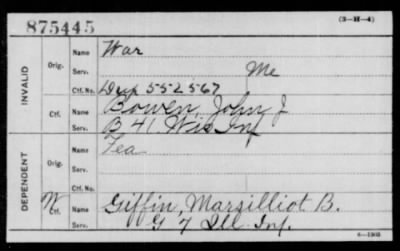 875445
(3-H-4)
INVALID
Orig.
Name War
Serv. Me
Ctf. No. Dup 552567
Ctf.
Name Bowen, John J
Serv. B 41 Wis Inf
DEPENDENT
Orig.
Name Fea
Serv.
Ctf. No.
W
Ctf.
Name Giffin, Marsilliot B.
Serv. G 7 Ill. Inf.
6-1903